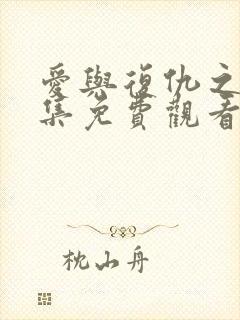 愛與復仇之
集免費觀看
枕山舟